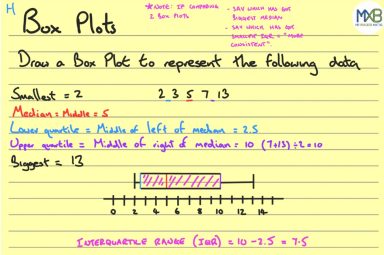 H
Box Plots
*NOTE: IF COMPARING
2 BOX PLOTS
- SAY WHICH HAS GOT
BIGGEST MEDIAN
- SAY WHICH HAS GOT
SMALLEST IQR = "MORE
CONSISTENT".
MXB
Draw a Box Plot to represent the following data
Smallest = 2
2 3 5 7 13
Median = Middle = 5
Lower quartile = Middle of left of median = 2.5
Upper quartile = Middle of right of median = 10 (7+13)÷2=10
Biggest = 13
0 2 4 6 8 10 12 14
INTERQUARTILE RANGE (IQR) = 10 - 2.5 = 7.5